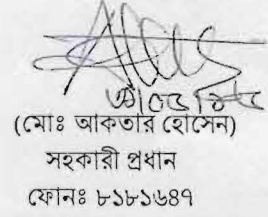 (মোঃ আকতার হোসেন)
সহকারী প্রধান
ফোনঃ ৮১৮১৬৪৭